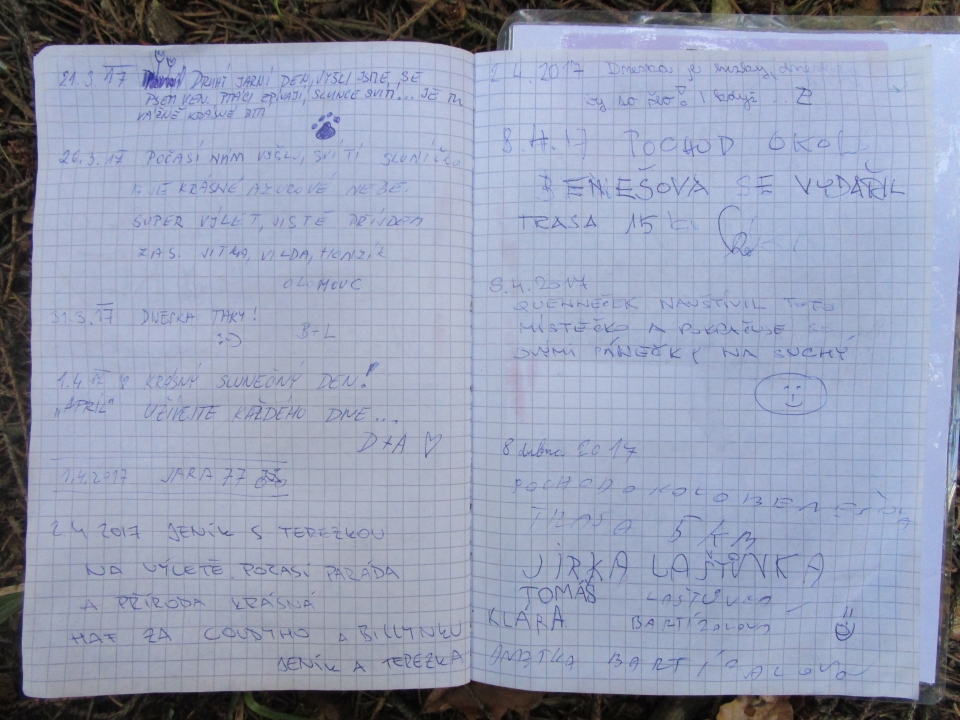 21.3. 17 DRUHÝ JARNÍ DEN, VYŠLI JSME SE
PSEM VEN. PTÁCI ZPÍVAJÍ, SLUNCE SVÍTÍ... JE TU
VÁŽNĚ KRÁSNĚ
26.3. 17 POČASÍ NÁM VYŠLO, SVÍTÍ SLUNÍČKO
JE KRÁSNÉ AZUROVÉ NEBE.
SUPER VÝLET, JISTĚ PŘIJDEM
ZAS. JITKA, VILDA, HONZÍK
OLOMOUC
31.3. 17 DNESKA TAKY!
:-) B+L
1.4. 17 KRÁSNÝ SLUNEČNÝ DEN!
„APRÍL" UŽÍVEJTE KAŽDÉHO DNE...
D+A ♡
1.4.2017 JARA 77
2.4 2017 JENÍK S TEREZKOU
NA VÝLETĚ. POČASÍ PARÁDA
A PŘÍRODA KRÁSNÁ
HAF ZA GOLDYHO A BILLYNKU
JENÍK A TEREZKA
2.4.2017 Dneska je
8.4.17 POCHOD OKOLO
BENEŠOVA SE VYDAŘIL
TRASA 15
8.4.2017
QUENNEČEK NAVŠTÍVIL TOTO
MÍSTEČKO A POKRAČUJE SE
SVÝMI PÁNEČKY NA SUCHÝ
8 dubna 2017
POCHOD OKOLO BENEŠOVA
TRASA 5 KM
JIRKA LAŠTŮVKA
TOMÁŠ LAŠTŮVKA
KLÁRA BARTÍ
ANETKA BARTÍ